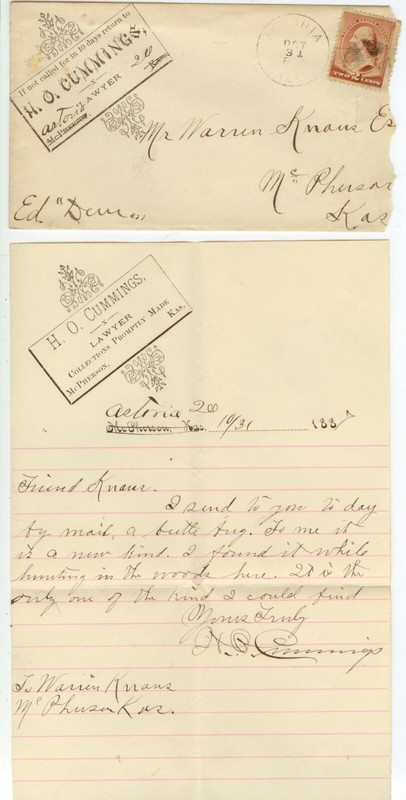 If not called for in 10 days return to
H. O. CUMMINGS,
LAWYER
Astoria
McPHERSON, Kas.
OCT
31
TWO CENTS
Mr Warren Knaus Es
McPherson
Kas
Ed "Dem"
H. O. CUMMINGS,
—x—
LAWYER
COLLECTIONS PROMPTLY MADE
McPHERSON, KAS.
Astoria
McPherson, Kas. 10/31 188
Friend Knaus.
I send to you to day
by mail, a beetle bug. To me it
is a new kind. I found it while
hunting in the woods here. It is the
only one of the kind I could find
Yours Truly
H. O. Cummings
To Warren Knaus
McPherson Kas.